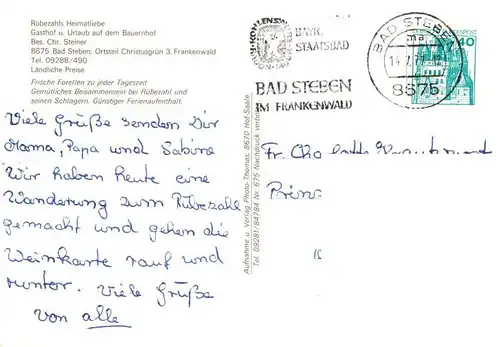 Rübezahls Heimatliebe
Gasthof u. Urlaub auf dem Bauernhof
Bes. Chr. Steiner
8675 Bad Steben, Ortsteil Christusgrün 3, Frankenwald
Tel. 09288/490
Ländliche Preise
Frische Forellen zu jeder Tageszeit
Gemütliches Beisammensein bei Rübezahl und
seinen Schlagern. Günstiger Ferienaufenthalt.
Viele Grüße senden Dir
Mama, Papa und Sabine
Wir haben heute eine
Wanderung zum Rübezahl
gemacht und gehen die
Weinkarte rauf und
runter. Viele Grüße
von alle
Aufnahme u. Verlag Photo-Thomas, 8670 Hof-Saale
Tel. 09281/84784 Nr. 675 Nachdruck verboten
BAYR.
STAATSBAD
BAD STEBEN
IM FRANKENWALD
BAD STEBEN
ma
8675
40
Fr.